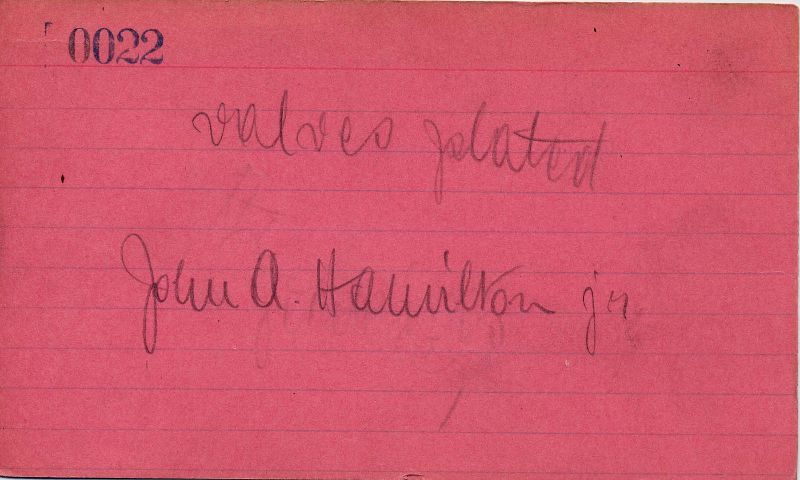 0022
valves plated
John A. Hamilton jr.